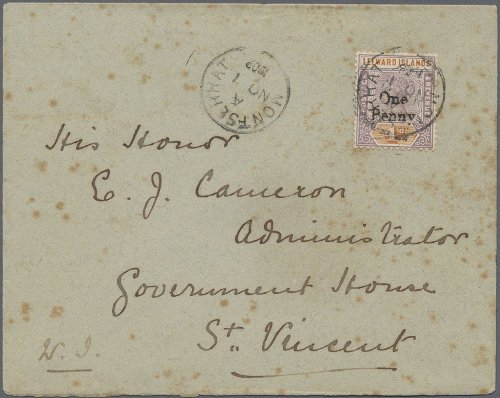 MONTSERRAT
A
NO 1
02
LEEWARD ISLANDS
One
Penny
His Honor
E. J. Cameron
Administrator
Government House
St. Vincent
W. I.